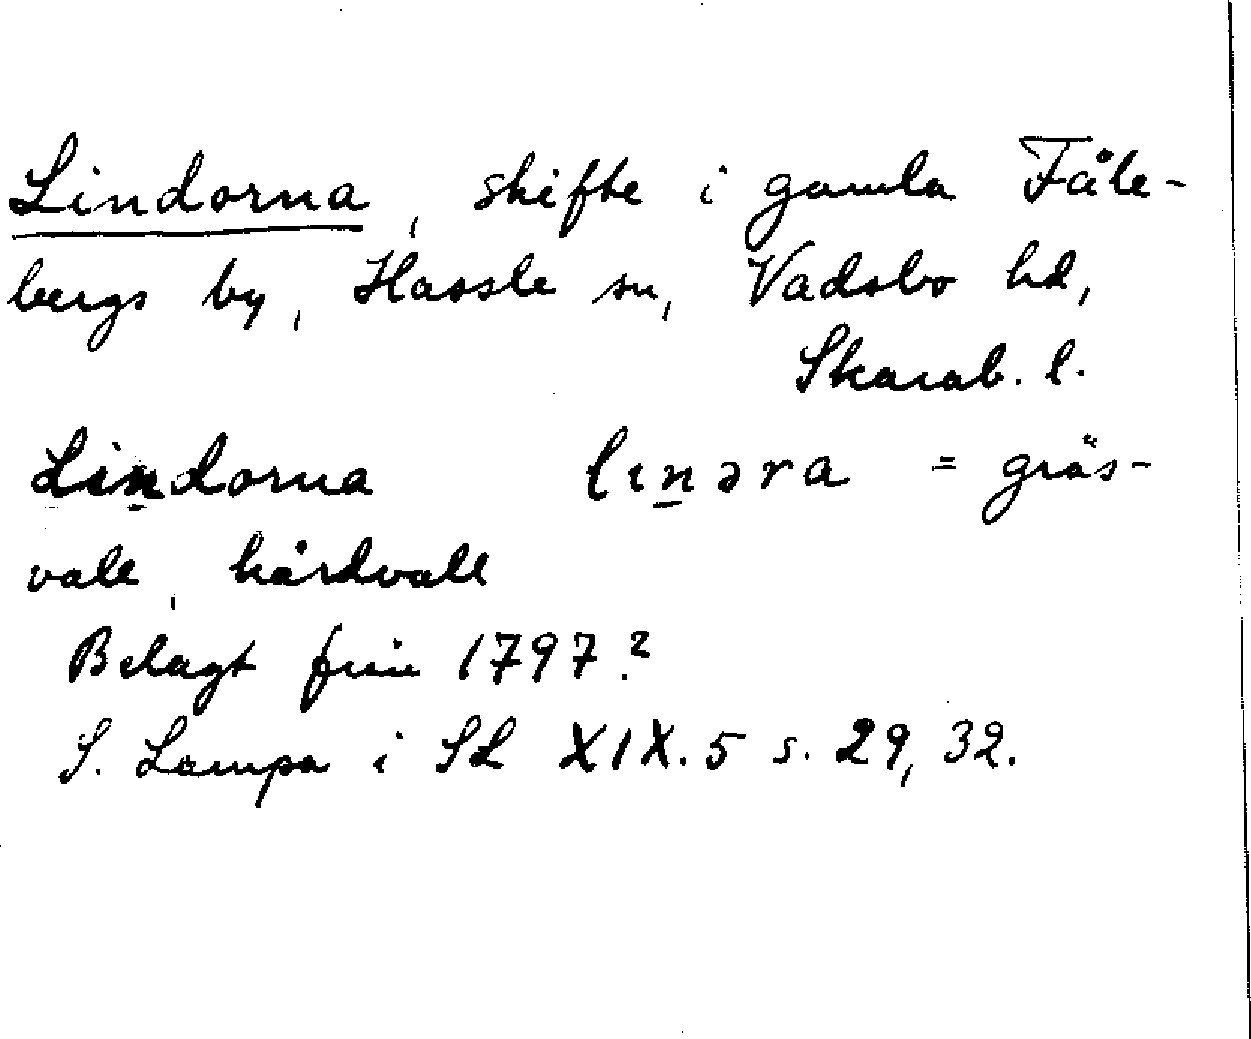 Lindorna, skifte i gamla Fåle-
bergs by, Hassle sn, Vadsbo hd,
Skarab. l.
Lindorna lınəra = gräs-
vall, hårdvall
Belagt från 1797?
S. Lampa i SL XIX.5 s. 29, 32.